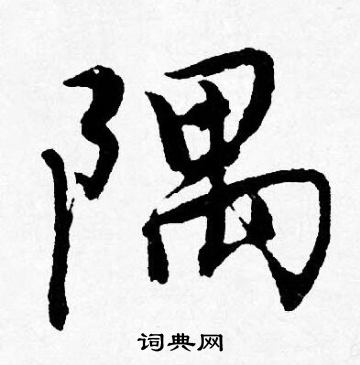 隅
词典网